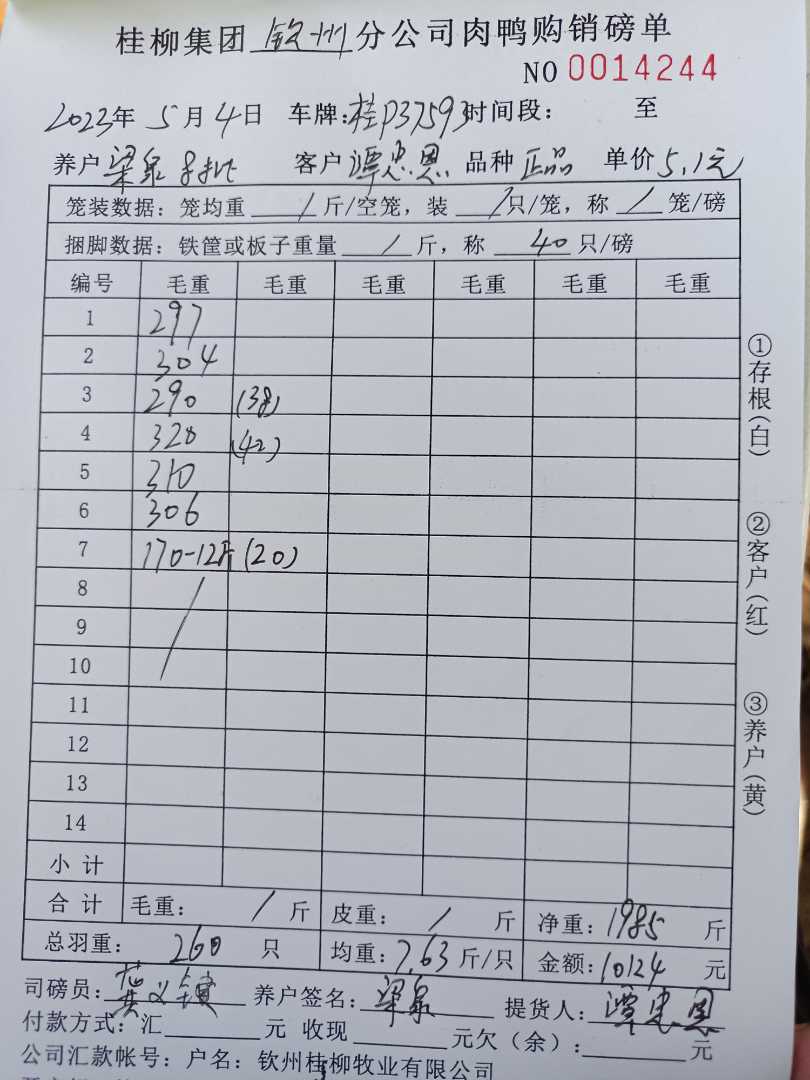 桂柳集团 钦州 分公司肉鸭购销磅单
NO 0014244
2023年 5月4日 车牌:桂P37593 时间段: 至
养户 梁泉 客户 谭忠恩 品种 正品 单价 5.1元
笼装数据：笼均重 / 斤/空笼，装 / 只/笼，称 / 笼/磅
捆脚数据：铁筐或板子重量 / 斤，称 40 只/磅
编号 毛重 毛重 毛重 毛重 毛重 毛重
1 297
2 304
3 290 (38)
4 320 (42)
5 310
6 306
7 170-12斤(20)
8
9
10
11
12
13
14
小计
合计 毛重： / 斤 皮重： / 斤 净重：1985 斤
总羽重： 260 只 均重：7.63 斤/只 金额：10124 元
司磅员： 养户签名：梁泉 提货人：谭忠恩
付款方式：汇 元 收现 元欠（余）： 元
公司汇款帐号：户名：钦州桂柳牧业有限公司
①存根(白)
②客户(红)
③养户(黄)